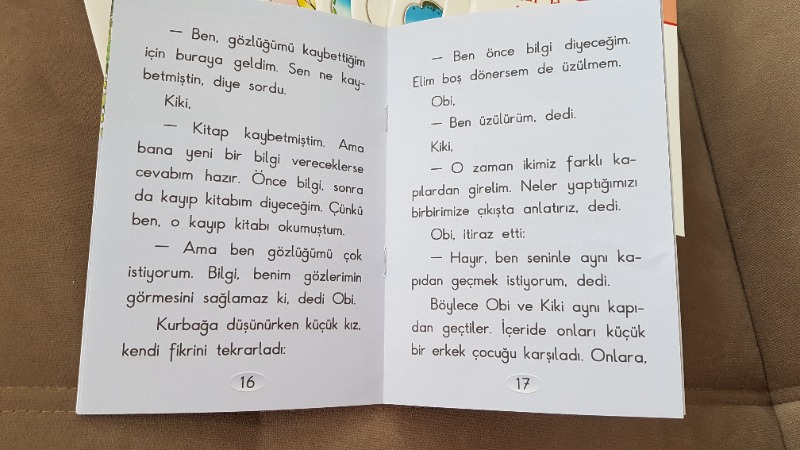 — Ben, gözlüğümü kaybettiğim
için buraya geldim. Sen ne kay-
betmiştin, diye sordu.
Kiki,
— Kitap kaybetmiştim. Ama
bana yeni bir bilgi vereceklerse
cevabım hazır. Önce bilgi, sonra
da kayıp kitabım diyeceğim. Çünkü
ben, o kayıp kitabı okumuştum.
— Ama ben gözlüğümü çok
istiyorum. Bilgi, benim gözlerimin
görmesini sağlamaz ki, dedi Obi.
Kurbağa düşünürken küçük kız,
kendi fikrini tekrarladı:
16
— Ben önce bilgi diyeceğim.
Elim boş dönersem de üzülmem.
Obi,
— Ben üzülürüm, dedi.
Kiki,
— O zaman ikimiz farklı ka-
pılardan girelim. Neler yaptığımızı
birbirimize çıkışta anlatırız, dedi.
Obi, itiraz etti:
— Hayır, ben seninle aynı ka-
pıdan geçmek istiyorum, dedi.
Böylece Obi ve Kiki aynı kapı-
dan geçtiler. İçeride onları küçük
bir erkek çocuğu karşıladı. Onlara,
17